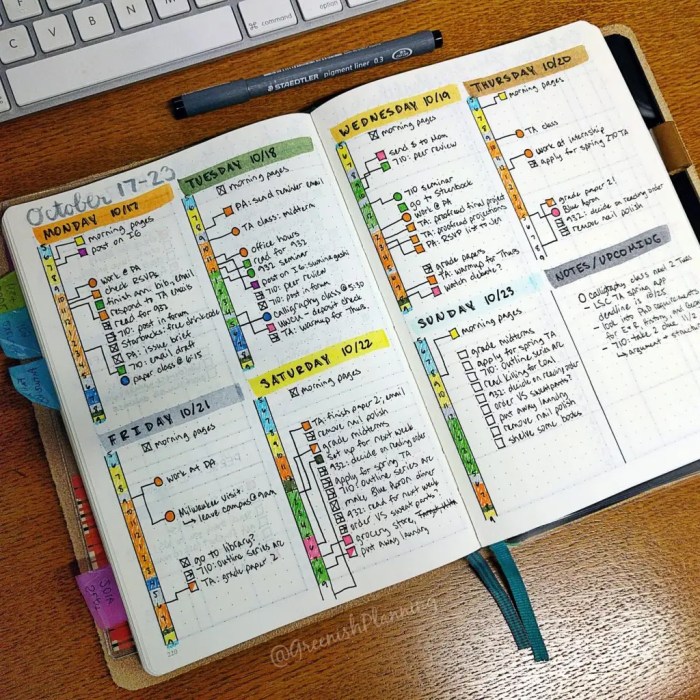 command
option
Z
X
C
V
STAEDTLER pigment liner 0.3
October 17-23
MONDAY 10/17
morning pages
post on IG
work @ PA
check RSVPs
finish ann. bib, email
respond to TA emails
read for 932
710: post in forum
Starbucks: free drink code
PA: issue brief
710: email draft
paper class @ 6:15
TUESDAY 10/18
morning pages
PA: send reminder email
TA class: midterm
office hours
read for 932
932 seminar
post on IG: suminagashi
710: peer review
710: post in forum
calligraphy class @ 5:30
lunch - deposit check
TA: warmup for Thus.
WEDNESDAY 10/19
morning pages
send $ to Mom
710: peer review
710 seminar
go to Steenbock
work @ PA
TA: proofread final project
TA: proofread projections
PA: RSVP list to Jen
grade papers
TA: warmup for Thus
watch debate?
THURSDAY 10/20
morning pages
TA class
work at internship
apply for spring TA
grade paper 2!
Blue Heron
932: decide on reading order
remove nail polish
FRIDAY 10/21
morning pages
work at PA
Milwaukee visit
leave campus @ 9am
go to library?
710: outline series arc
TA: grade paper 2
SATURDAY 10/22
morning pages
TA: finish paper 2, email
remove nail polish
grade midterms
set up for next week
932: decide on reading order
apply for spring TA
710: outline series arc
make Blue Heron dinner
932: read for next week
order VS sweat pants
grocery store,
put away laundry
SUNDAY 10/23
morning pages
grade midterms
apply for spring TA
710: outline series arc
read Killing for Coal
932: decide on reading order
order VS sweatpants?
put away laundry
remove nail polish
shelve some books
NOTES/UPCOMING
calligraphy class next 2 Tues
- LSC TA spring app
deadline is 10/25
- look into PhD requirements
- 710: take 2 class
220
@GreenishPlanning